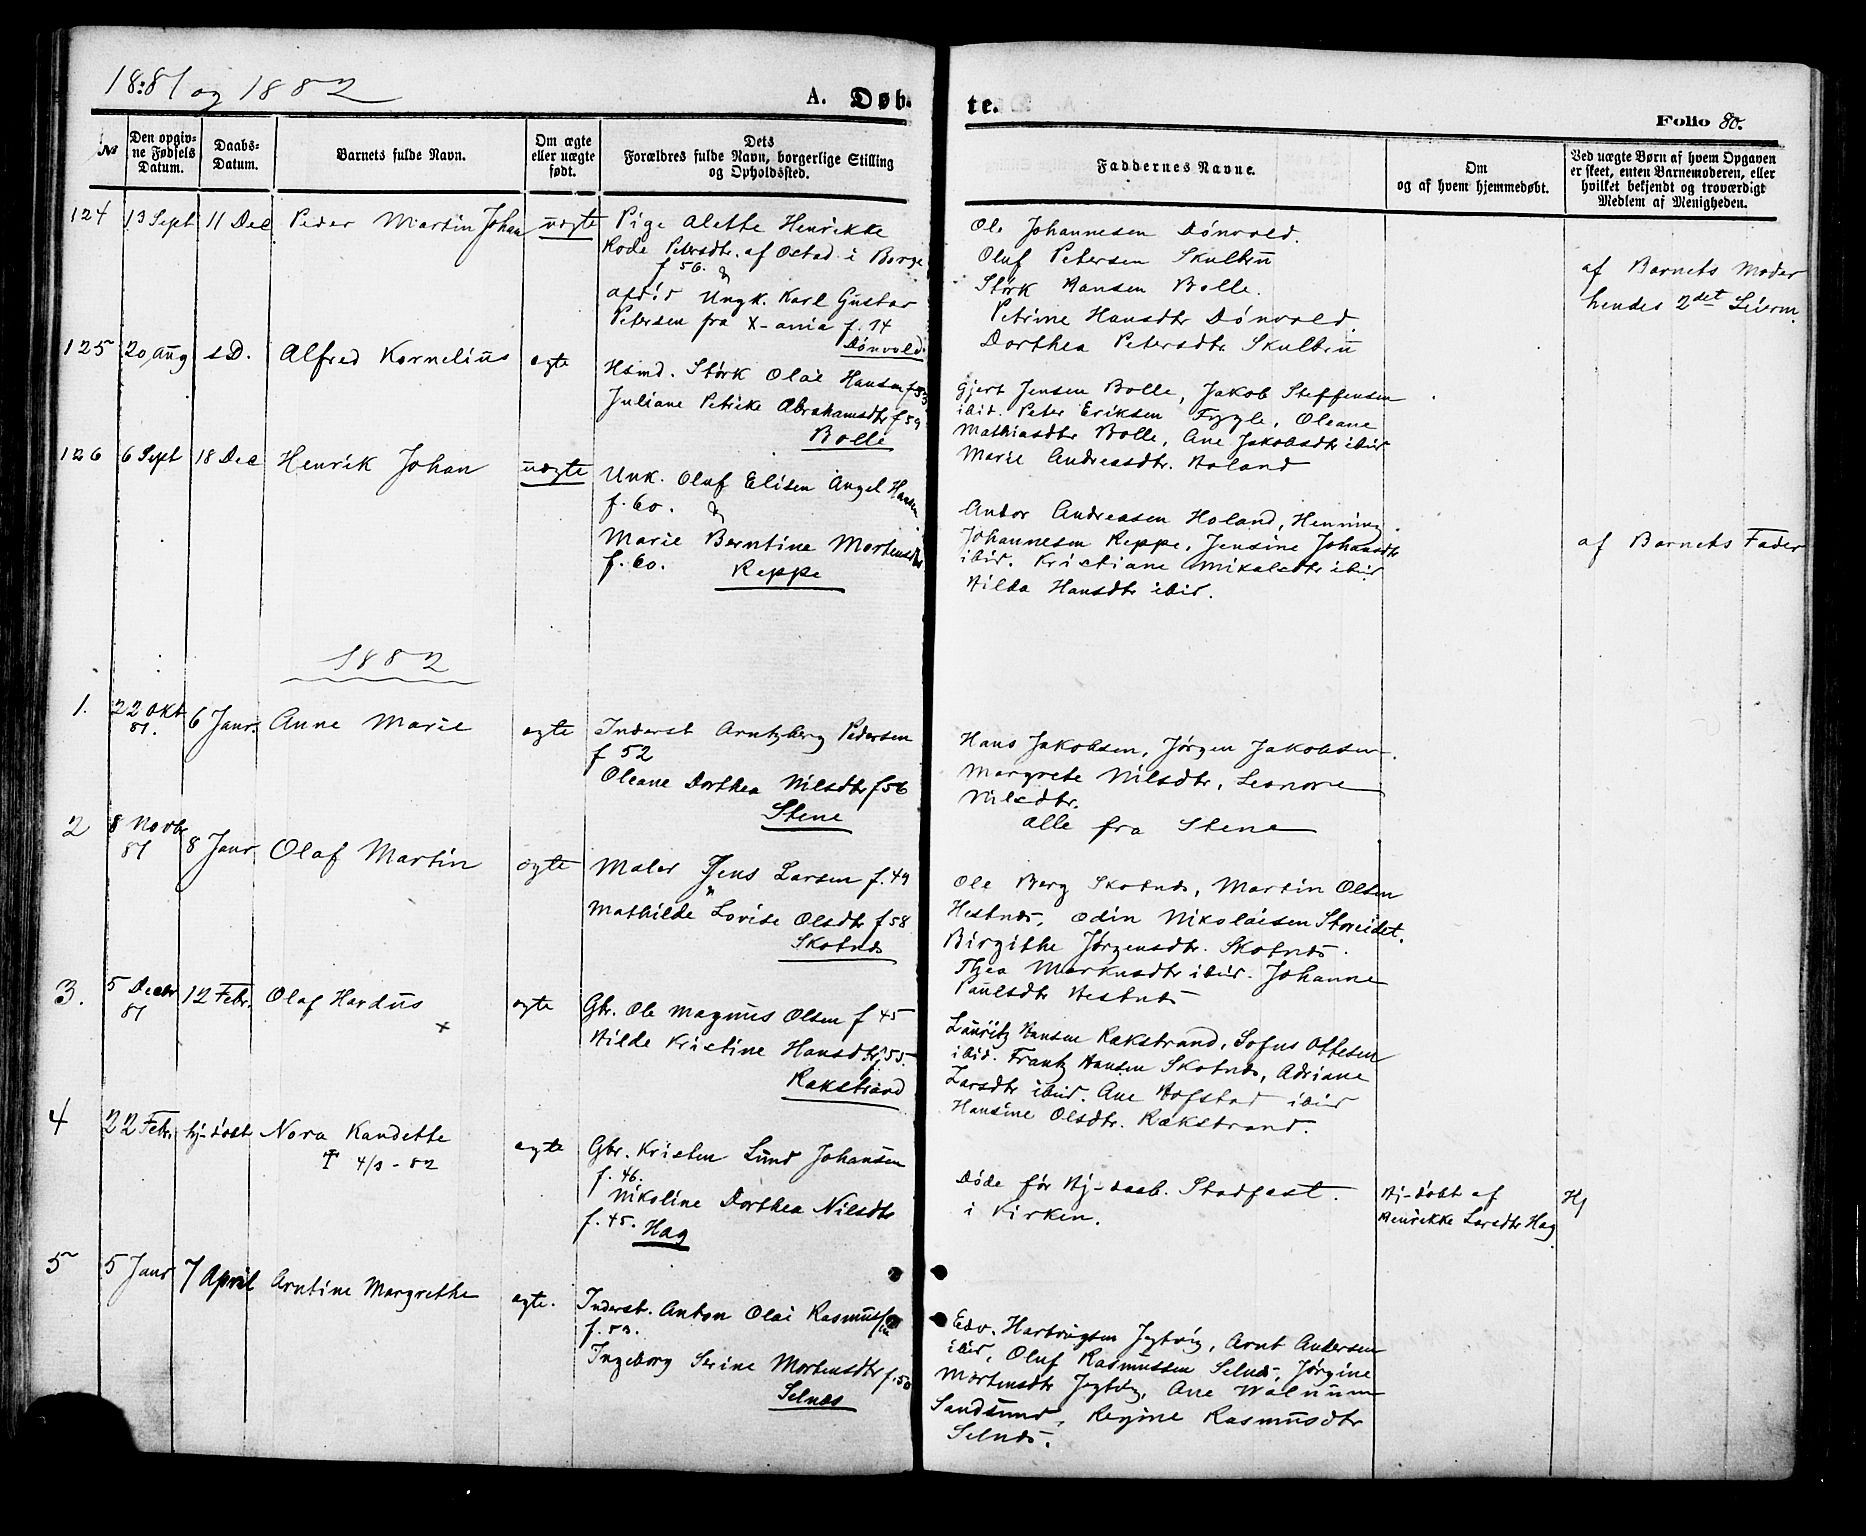 18:81 og 1882
A. Døb-
te.
Folio 80.
No
Den opgiv-
ne Fødsels
Datum.
Daabs-
Datum.
Barnets fulde Navn.
Om ægte
eller uægte
født.
Dets
Forældres fulde Navn, borgerlige Stilling
og Opholdssted.
Faddernes Navne.
Om
og af hvem hjemmedøbt.
Ved uægte Børn af hvem Opgaven
er skeet, enten Barnemoderen, eller
hvilket bekjendt og troværdigt
Medlem af Menigheden.
124 13 Sept 11 Dec Peder Martin Johan uægte
Pige Alette Henrikke
Rode Petersdtr. af Ostad i Borge
f 56. &
Ungk. Karl Gustav
Petersen fra X-ania f. 14
Dønvold
Ole Johannesen Dønvold.
Oluf Petersen Skulbru
Størk Hansen Bolle.
Petrine Hansdtr Dønvold.
Dorthea Petersdtr Skulbru
af Barnets Moder
hendes 2det Leierm.
125 20 Aug s D. Alfred Kornelius ægte
Hsmd. Størk Olai Hansen f 53
Juliane Petrike Abrahamsdtr f 59
Bolle
Gjert Jensen Bolle, Jakob Steffensen
ibid. Peter Eriksen Fygle, Oleane
Mathiasdtr Bolle, Ane Jakobsdtr ibid
Marie Andreasdtr. Holand
126 6 Sept 18 Dec Henrik Johan uægte
Unk. Oluf Elisen Angel Hansen
f. 60. &
Marie Berntine Mortensdtr
f. 60. Reppe
Andor Andreasen Holand, Henning
Johannesen Reppe, Jensine Johansdtr
ibid. Kristiane Mikalsdtr ibid
Hilda Hansdtr ibid.
af Barnets Fader
1882
1. 22 Okt 81. 6 Janr. Anne Marie ægte
Inderst Arntzberg Pedersen
f 52
Oleane Dorthea Nilsdtr f 56
Stene
Hans Jakobsen, Jørgen Jakobsen
Margrete Nilsdtr, Leonore
Nilsdtr.
alle fra Stene
2 8 Novbr 81 8 Janr. Olaf Martin ægte
Maler Jens Larsen f. 49
Mathilde Lovise Olsdtr f 58
Skotnæs
Ole Berg Skotnæs, Martin Olsen
Hestnæs, Odin Nikolaisen Storeidet.
Birgithe Jørgensdtr. Skotnæs.
Thea Markusdtr ibid. Johanne
Paulsdtr Hestnæs
3. 5 Decbr 81 12 Febr. Olaf Hardus x ægte
Gbr. Ole Magnus Olsen f 45
Hilde Kristine Hansdtr f. 55.
Rakstrand
Lauritz Hansen Rakstrand, Sofus Ottesen
ibid. Frantz Hansen Skotnæs, Adriane
Larsdtr ibid. Ane Hofstad ibid
Hansine Olsdtr. Rakstrand.
4 22 Febr. hj-døbt Nora Kandette ægte
† 4/3 - 82
Gbr. Kristen Lund Johansen
f. 46.
Nikoline Dorthea Nilsdtr
f. 45. Hag
Døde før Hj-daab. Stadfæst.
i Kirken.
Hj-døbt af
Henrikke Larsdtr Hag
Hj
5 5 Janr 7 April Arntine Margrethe ægte.
Inderst. Anton Olai Rasmussen
f. 53.
Ingeborg Serine Mortensdtr f. 50
Selnæs
Edv. Hartvigsen Jegtvig, Arnt Andersen
ibid, Oluf Rasmussen Selnæs, Jørgine
Mortensdtr Jegtvig, Ane Walnum
Sandsund, Regine Rasmusdtr
Selnæs.